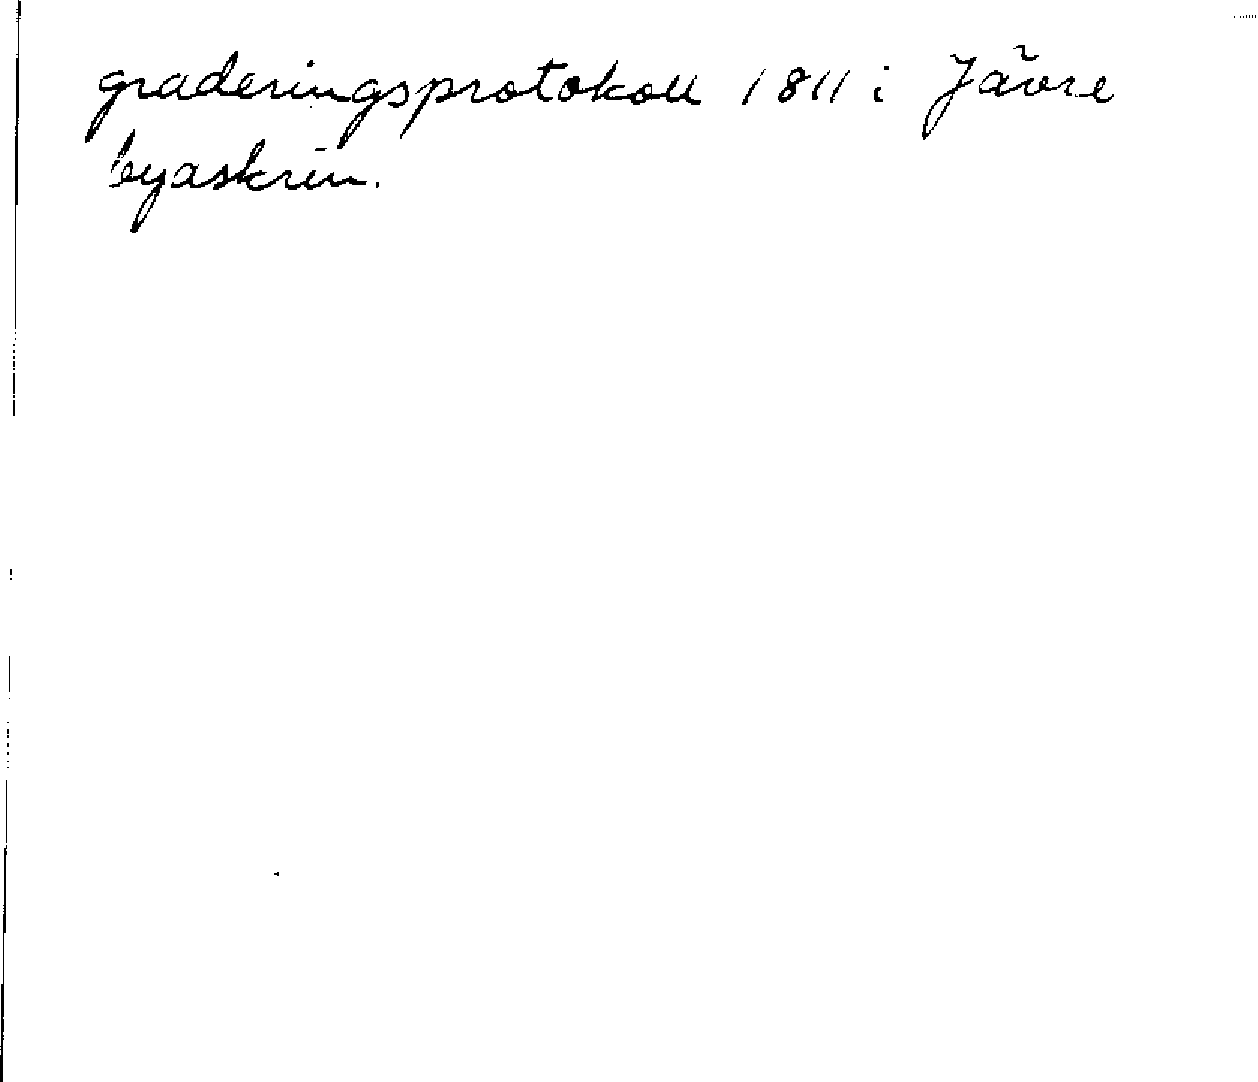 graderingsprotokoll 1811 i Jävre
byaskrin.